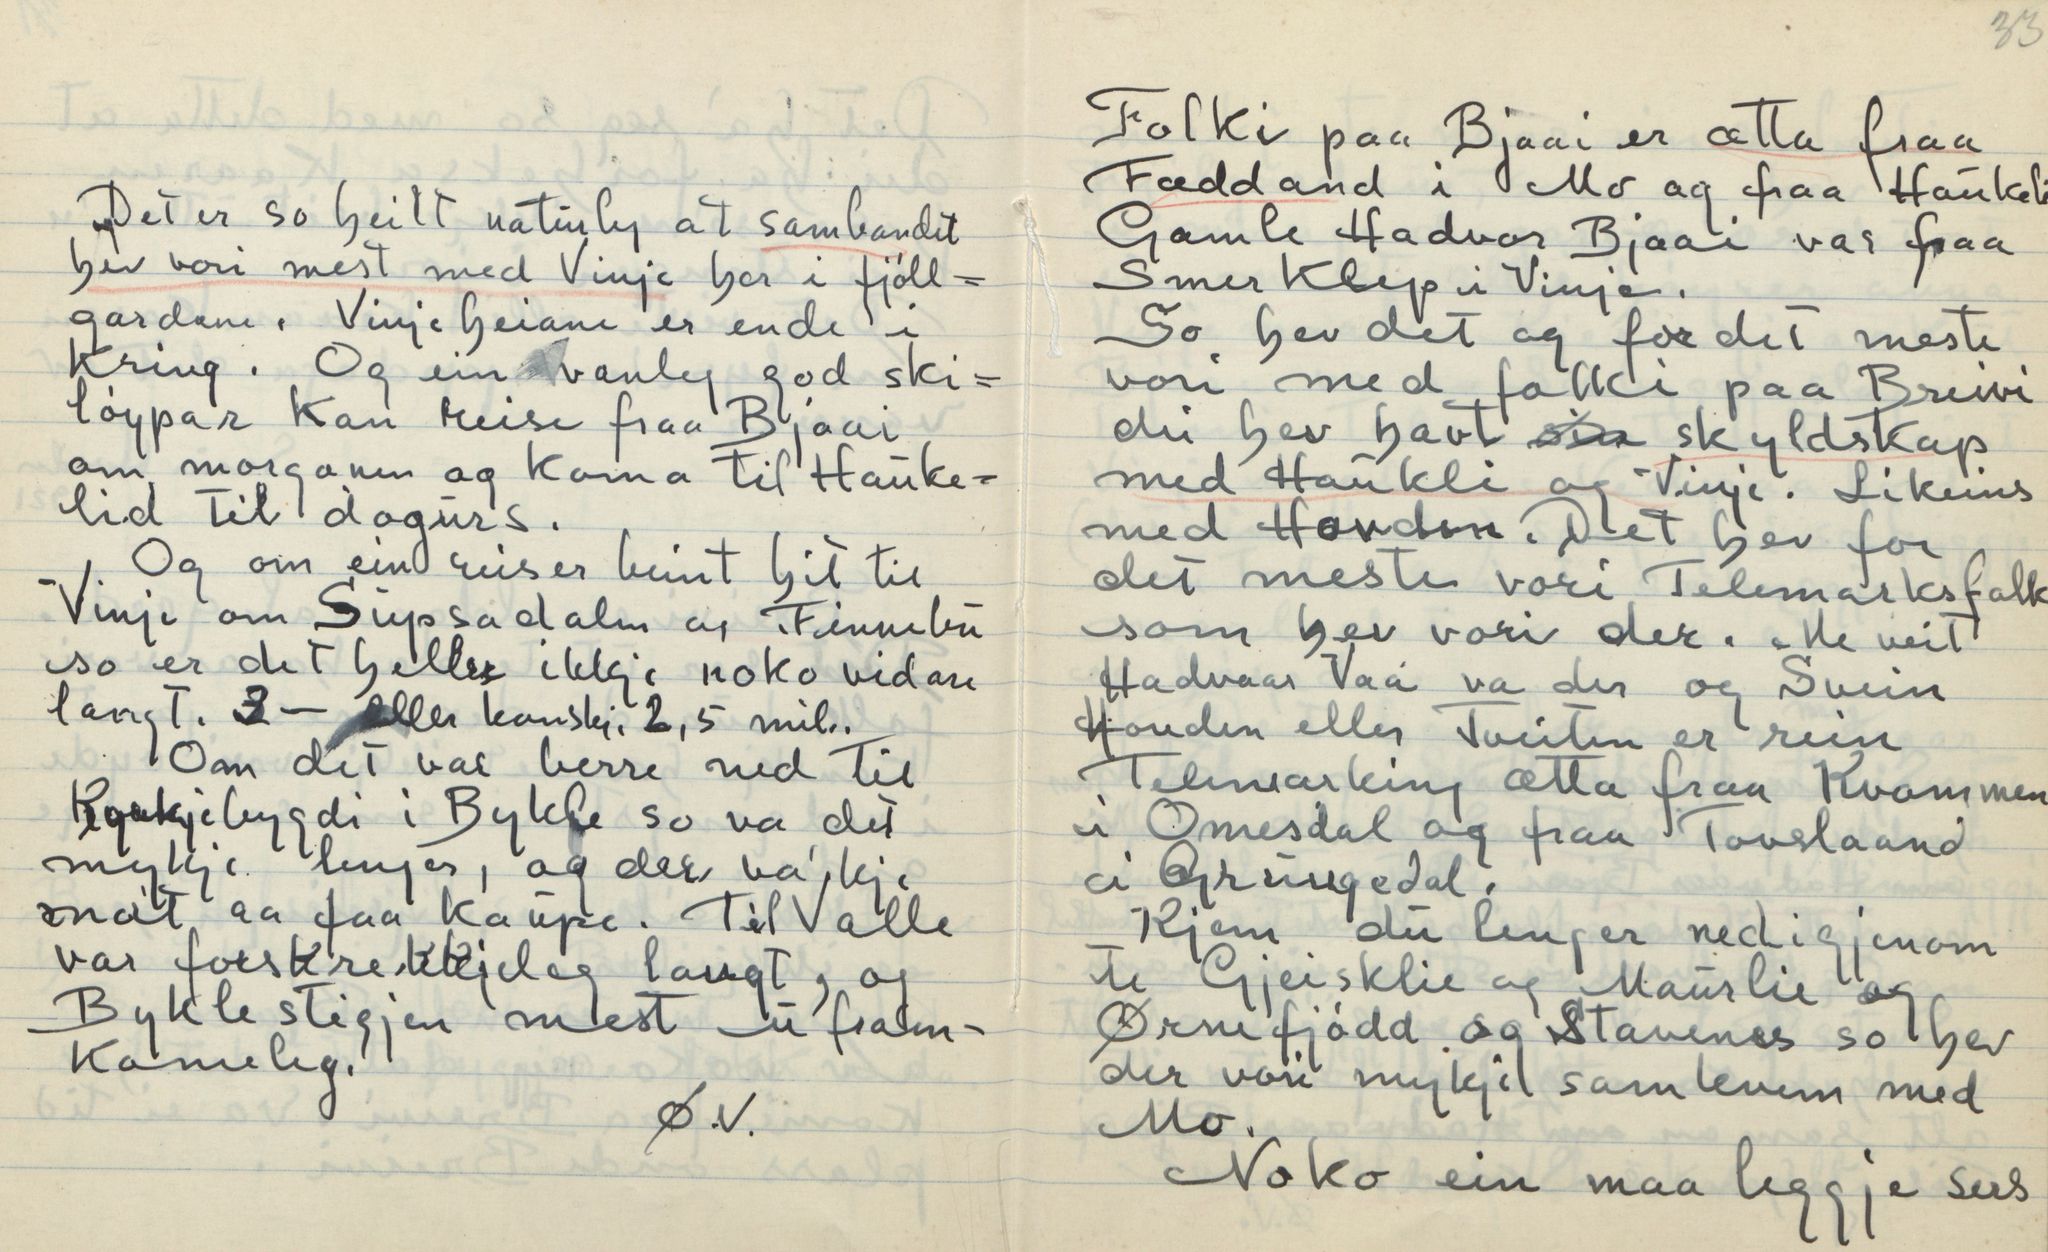 Det er so heilt naturleg at sambandet
hev vori mest med Vinje her i fjöll=
gardane. Vinjeheiane er ende i
kring. Og ein vanleg god ski=
löypar kan reise fraa Bjaai
om morganen og koma til Hauke=
lid til dogurs.
Og om ein reiser beint hit til
Vinje om Supsadalen og Finnebu
so er det heller ikkje noko vidare
langt. 3 — eller kanskje 2,5 mil.
Om det var berre ned til
Kyrkjebygdi i Bykle so va det
mykje lenger, og der va'kje
mat aa faa kaupe. Til Valle
var forskrekkjeleg langt, og
Byklestigjen mest u fram-
komeleg.
Ø.V.
33
Folki paa Bjaai er ætta fraa
Fæddand i Mo og fraa Haukeli
Gamle Hadvor Bjaai var fraa
Smerklep i Vinje.
So hev det og for det meste
vori med folki paa Breivi
dei hev havt skyldskap
med Haukli og Vinje. Likeins
med Hovden. Det hev for
det meste vori Telemarksfolk
som hev vori der. Me veit
Hadvaar Vaa va der og Svein
Hovden eller Tveiten er rein
Telemarking ætta fraa Kvammen
i Omesdal og fraa Tovslaand
i Grungedal.
Kjem du lenger ned igjenom
te Gjeisklie og Maurlie og
Ørnefjödd og Stavenes so hev
der vori mykjil samkvem med
Mo.
Noko ein maa leggje sers